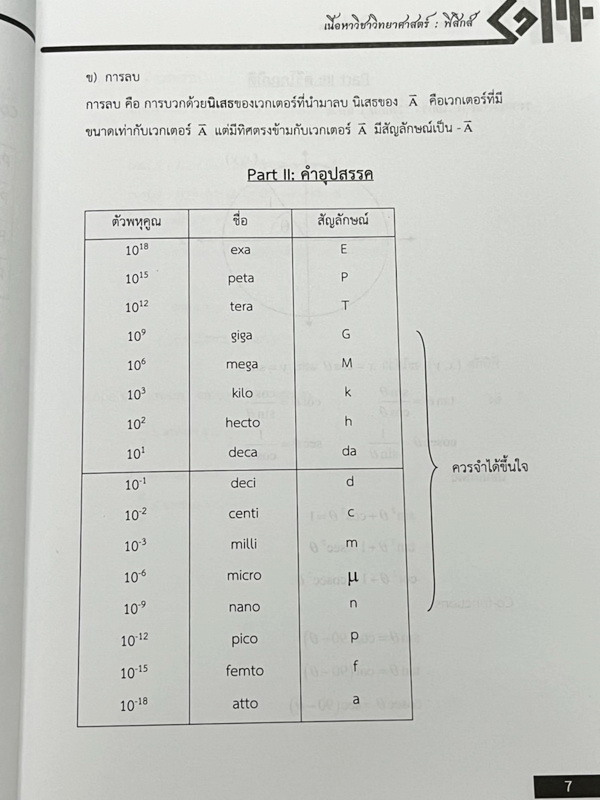 เนื้อหาวิชาวิทยาศาสตร์ : ฟิสิกส์
ข) การลบ
การลบ คือ การบวกด้วยนิเสธของเวกเตอร์ที่นำมาลบ นิเสธของ A̅ คือเวกเตอร์ที่มี
ขนาดเท่ากับเวกเตอร์ A̅ แต่มีทิศตรงข้ามกับเวกเตอร์ A̅ มีสัญลักษณ์เป็น -A̅
Part II: คำอุปสรรค
ตัวพหุคูณ ชื่อ สัญลักษณ์
10¹⁸ exa E
10¹⁵ peta P
10¹² tera T
10⁹ giga G
10⁶ mega M
10³ kilo k
10² hecto h
10¹ deca da
ควรจำได้ขึ้นใจ
10⁻¹ deci d
10⁻² centi c
10⁻³ milli m
10⁻⁶ micro μ
10⁻⁹ nano n
10⁻¹² pico p
10⁻¹⁵ femto f
10⁻¹⁸ atto a
7